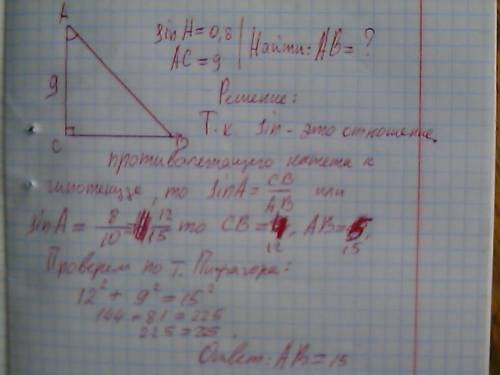 A
9
C
B
sin A = 0,8
AC = 9
Найти: AB = ?
Решение:
Т.к sin - это отношение
противолежащего катета к
гипотенузе, то sin A = CB/AB или
sin A = 8/10 = 12/15 то CB = 12, AB = 15.
Проверем по Т. Пифагора:
12² + 9² = 15²
144 + 81 = 225
225 = 225.
Ответ: AB = 15